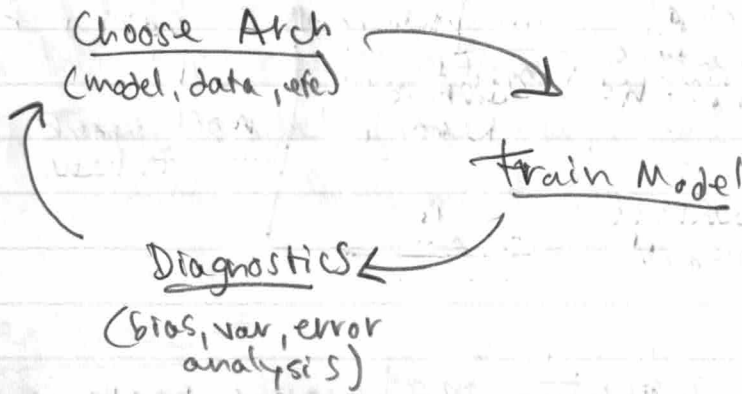 Choose Arch
(model, data, etc)
Train Model
Diagnostics
(bias, var, error
analysis)